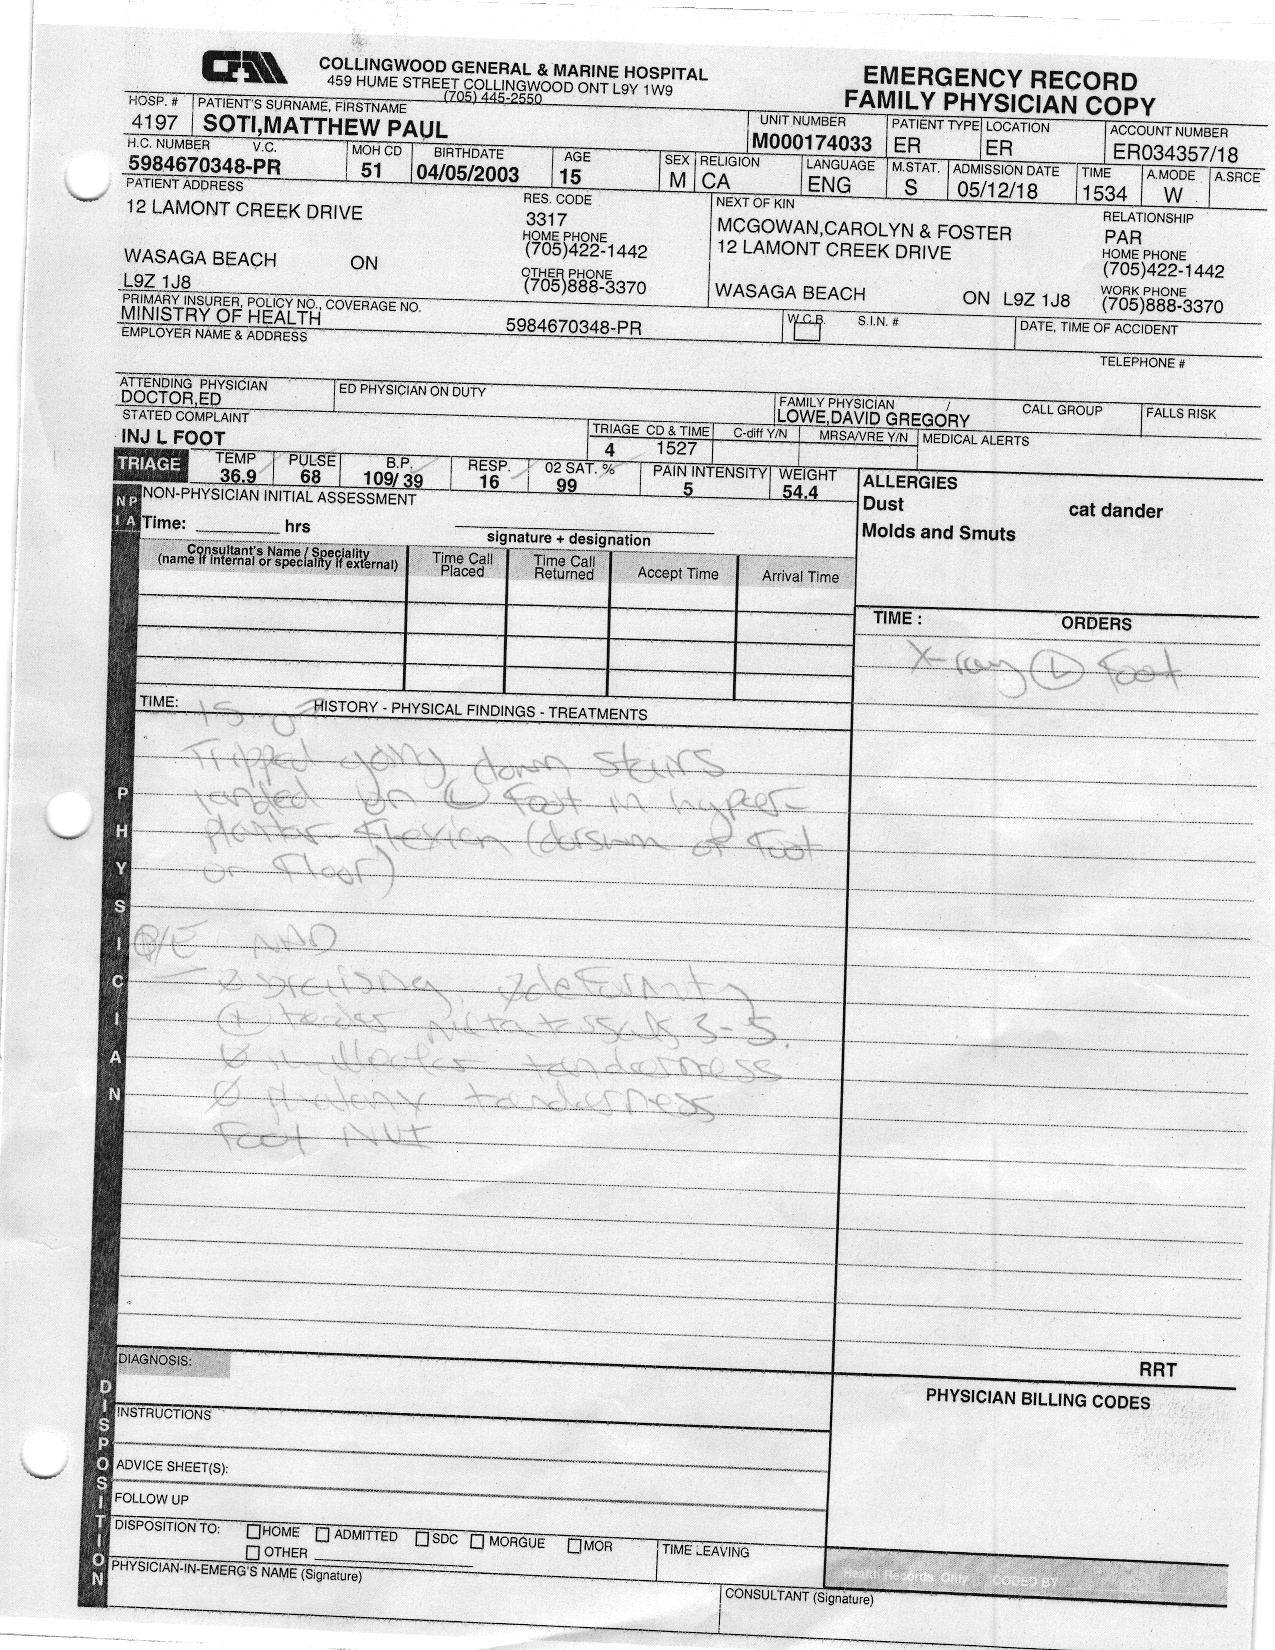 COLLINGWOOD GENERAL & MARINE HOSPITAL
459 HUME STREET COLLINGWOOD ONT L9Y 1W9
(705) 445-2550
EMERGENCY RECORD
FAMILY PHYSICIAN COPY
HOSP. # PATIENT'S SURNAME, FIRSTNAME UNIT NUMBER PATIENT TYPE LOCATION ACCOUNT NUMBER
4197 SOTI,MATTHEW PAUL M000174033 ER ER ER034357/18
H.C. NUMBER V.C. MOH CD BIRTHDATE AGE SEX RELIGION LANGUAGE M.STAT. ADMISSION DATE TIME A.MODE A.SRCE
5984670348-PR 51 04/05/2003 15 M CA ENG S 05/12/18 1534 W
PATIENT ADDRESS RES. CODE NEXT OF KIN RELATIONSHIP
12 LAMONT CREEK DRIVE 3317 MCGOWAN,CAROLYN & FOSTER PAR
HOME PHONE 12 LAMONT CREEK DRIVE HOME PHONE
(705)422-1442 (705)422-1442
WASAGA BEACH ON OTHER PHONE WASAGA BEACH ON L9Z 1J8 WORK PHONE
L9Z 1J8 (705)888-3370 (705)888-3370
PRIMARY INSURER, POLICY NO., COVERAGE NO. W.C.B. S.I.N. # DATE, TIME OF ACCIDENT
MINISTRY OF HEALTH 5984670348-PR
EMPLOYER NAME & ADDRESS TELEPHONE #
ATTENDING PHYSICIAN ED PHYSICIAN ON DUTY FAMILY PHYSICIAN / CALL GROUP FALLS RISK
DOCTOR,ED LOWE,DAVID GREGORY
STATED COMPLAINT TRIAGE CD & TIME C-diff Y/N MRSA/VRE Y/N MEDICAL ALERTS
INJ L FOOT 4 1527
TRIAGE TEMP PULSE B.P. RESP. 02 SAT. % PAIN INTENSITY WEIGHT
36.9 68 109/39 16 99 5 54.4
ALLERGIES
Dust cat dander
Molds and Smuts
NPIA NON-PHYSICIAN INITIAL ASSESSMENT
Time: ________ hrs
signature + designation
Consultant's Name / Speciality Time Call Time Call Accept Time Arrival Time
(name if internal or speciality if external) Placed Returned
TIME : ORDERS
X-ray Ⓛ Foot
TIME: HISTORY - PHYSICAL FINDINGS - TREATMENTS
15 ♂
Tripped going down stairs
landed on Ⓛ foot in hyper-
plantar flexion (dorsum of foot
on floor)
O/E NAD
∅ bruising, ∅ deformity
⊕ tender metatarsals 3-5.
∅ malleolar tenderness
∅ phalanx tenderness
Foot NVI
PHYSICIAN
DIAGNOSIS: RRT
PHYSICIAN BILLING CODES
INSTRUCTIONS
ADVICE SHEET(S):
FOLLOW UP
DISPOSITION TO: HOME ADMITTED SDC MORGUE MOR TIME LEAVING
OTHER
DISPOSITION
Health Records Only CODED BY
PHYSICIAN-IN-EMERG'S NAME (Signature)
CONSULTANT (Signature)